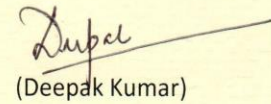 Deepak
(Deepak Kumar)